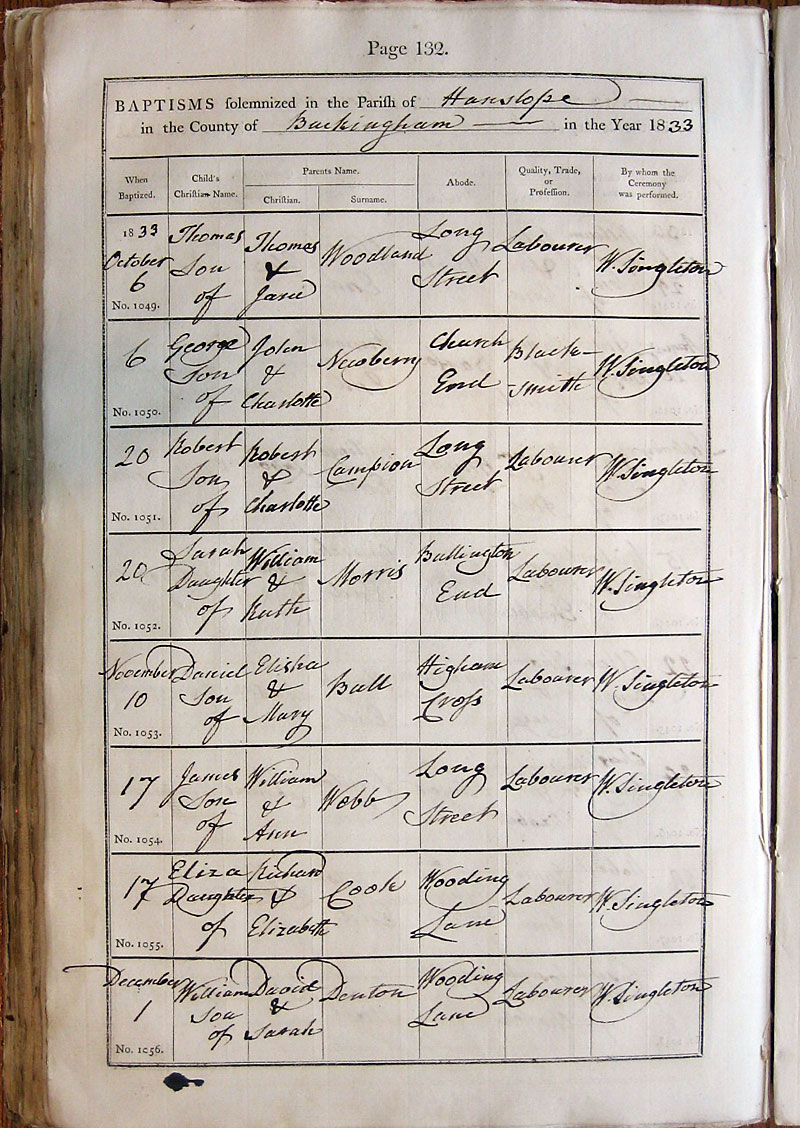 Page 132.
BAPTISMS solemnized in the Parish of Hanslope
in the County of Buckingham in the Year 1833
When Baptized.
Child's Christian Name.
Parents Name.
Christian.
Surname.
Abode.
Quality, Trade, or Profession.
By whom the Ceremony was performed.
1833
October
6
No. 1049.
Thomas
Son
of
Thomas
&
Jane
Woodland
Long
Street
Labourer
W. Singleton
6
No. 1050.
George
Son
of
John
&
Charlotte
Newberry
Church
End
Black-
smith
W. Singleton
20
No. 1051.
Robert
Son
of
Robert
&
Charlotte
Campion
Long
Street
Labourer
W. Singleton
20
No. 1052.
Sarah
Daughter
of
William
&
Ruth
Morris
Bullington
End
Labourer
W. Singleton
November
10
No. 1053.
Daniel
Son
of
Elisha
&
Mary
Bull
Higham
Cross
Labourer
W. Singleton
17
No. 1054.
James
Son
of
William
&
Ann
Webb
Long
Street
Labourer
W. Singleton
17
No. 1055.
Eliza
Daughter
of
Richard
&
Elizabeth
Cook
Wooding
Lane
Labourer
W. Singleton
December
1
No. 1056.
William
Son
of
David
&
Sarah
Denton
Wooding
Lane
Labourer
W. Singleton